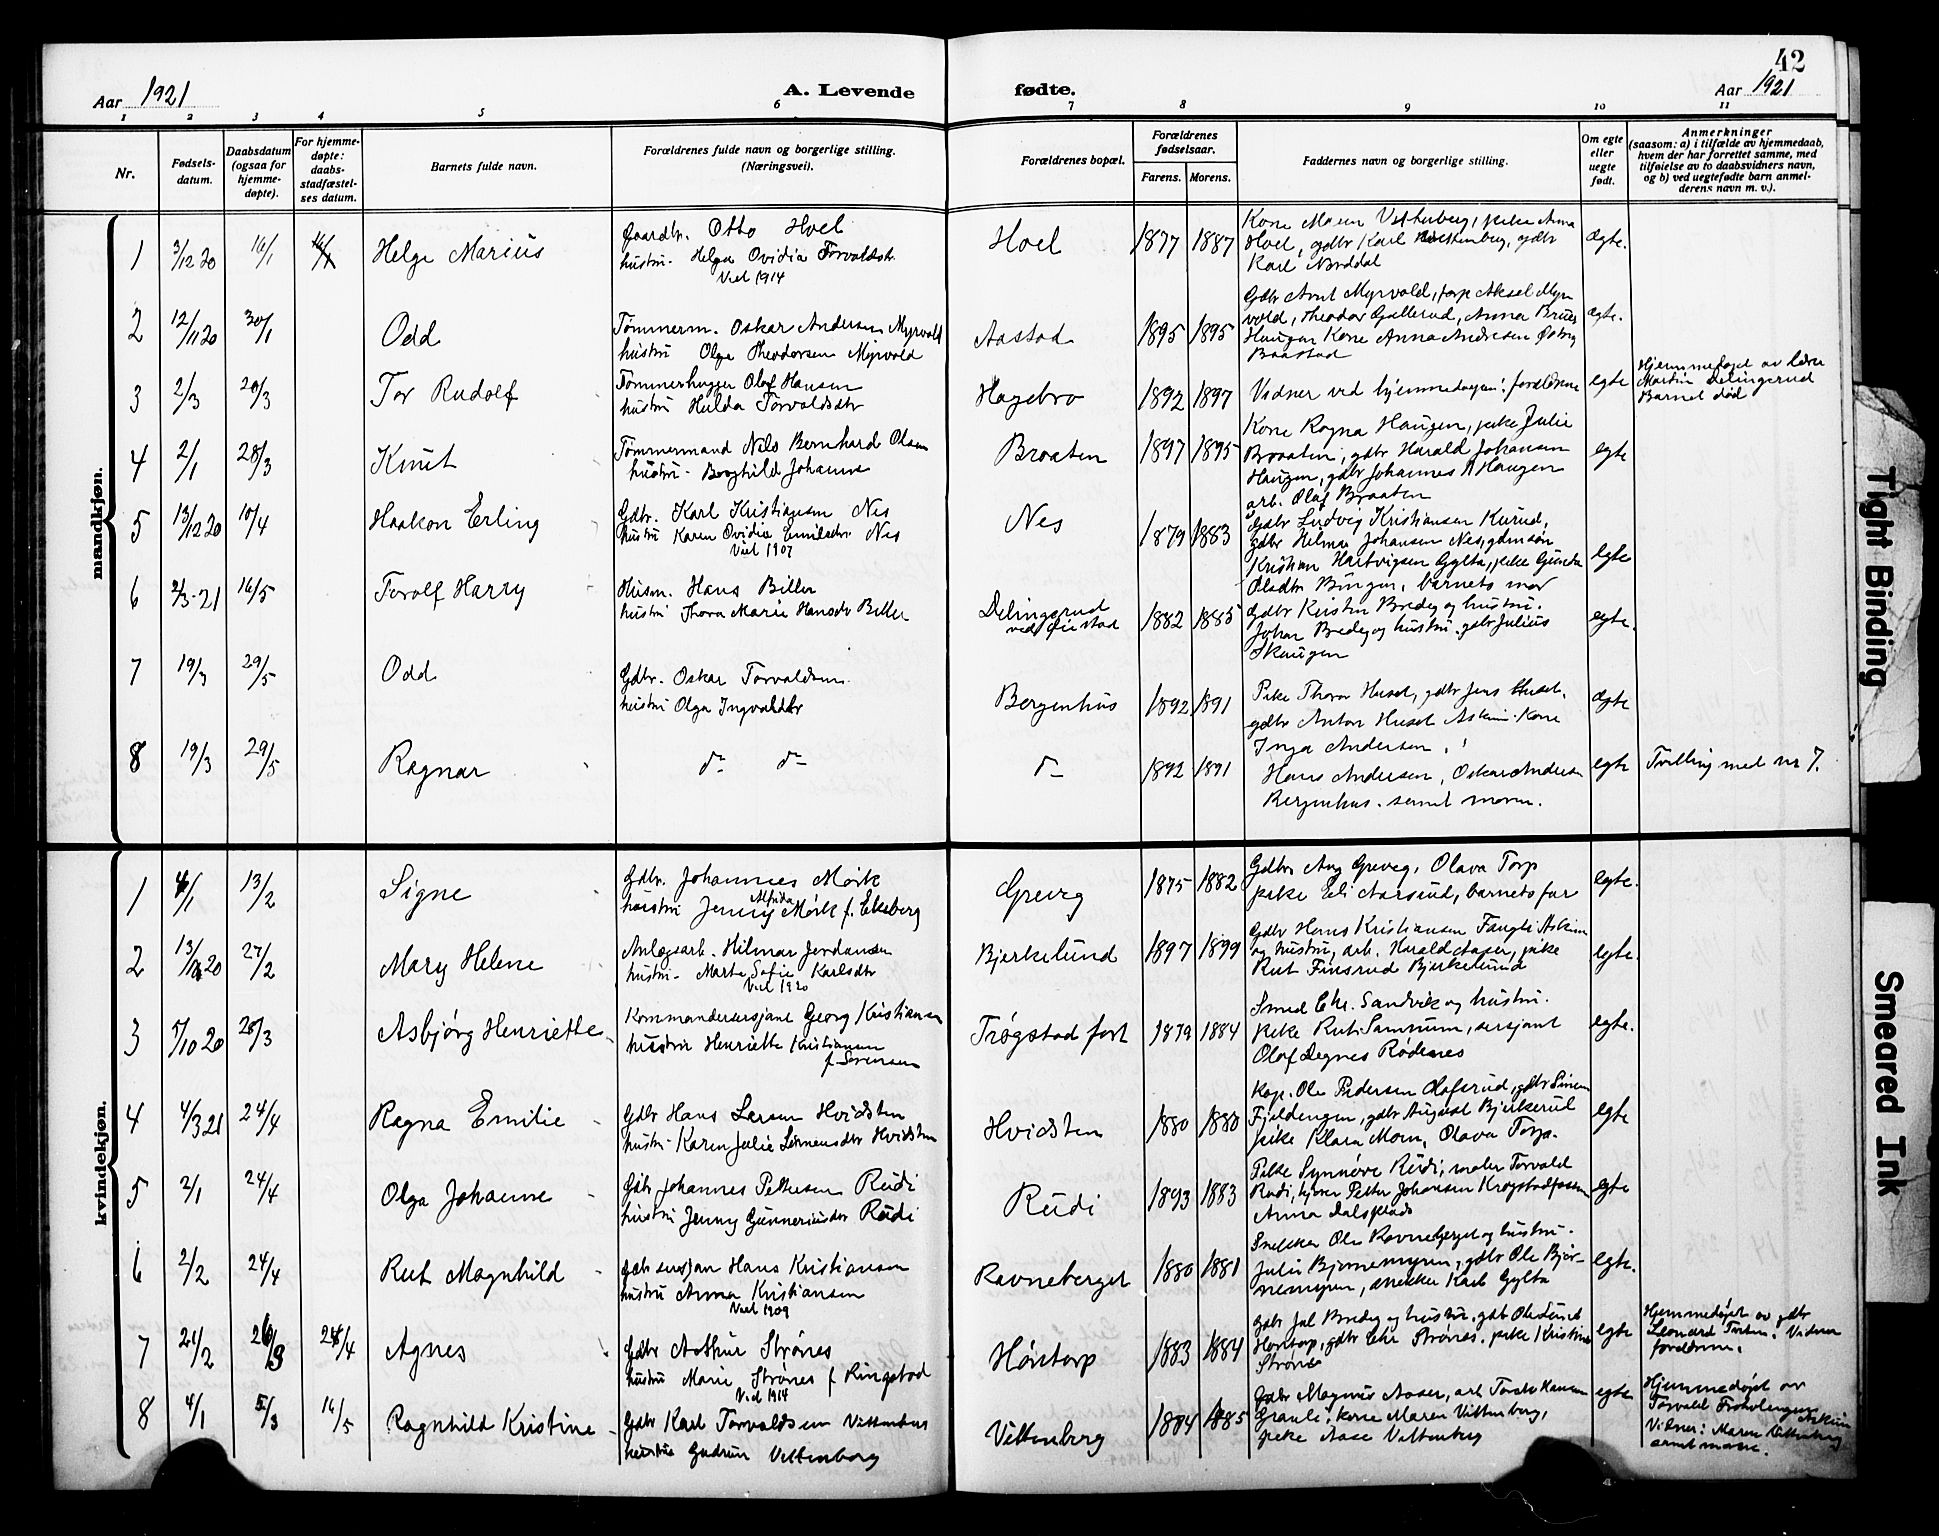 42
Aar 1921
A. Levende
fødte.
Aar 1921
1 2 3 4 5 6 7 8 9 10 11
Nr.
Fødsels-
datum.
Daabsdatum
(ogsaa for
hjemme-
døpte).
For hjemme-
døpte:
daabs-
stadfæstel-
ses datum.
Barnets fulde navn.
Forældrenes fulde navn og borgerlige stilling.
(Næringsvei).
Forældrenes bopæl.
Forældrenes
fødselsaar.
Farens. Morens.
Faddernes navn og borgerlige stilling.
Om egte
eller
uegte
født.
Anmerkninger
(saasom: a) i tilfælde av hjemmedaab,
hvem der har forrettet samme, med
tilføielse av to daabsvidners navn,
og b) ved uegtefødte barn anmel-
derens navn m. v.).
mandkjøn.
1 3/12 20 16/1 Helge Marius
Gaardbr. Otto Hoel
hustru. Helga Ovidia Torvaldsdtr
Viet 1914
Hoel 1877 1887
Kone Maren Vittenberg, pike Anna
Hoel, gdbr Karl Vittenberg, gdbr
Karl Norddal
Ægte.
2 12/11 20 30/1 Odd
Tømmerm. Oskar Andersen Myrvold
hustru Olga Theodorsen Myrvold
Aastad 1895 1895
Gdbr Arnt Myrvold, Aksel Myr
vold, Theodor Gallerud, Anna
Haugen Kone Anna Andresen
Baastad
Ægte.
3 2/3 20/3 Tor Rudolf
Tømmerhugger Olaf Hansen
hustru Hulda Torvaldsdtr
Hagebro 1892 1897
Vidner ved hjemmedaapen: forældrene
egte
Hjemmedøpt av lærer
Martin Delingsrud
Barnet død
4 2/1 28/3 Knut
Tømmermand Nils Bernhard Olsen
hustru. Borghild Johanne
Braaten 1897 1895
Kone Ragna Haugen, pike Julie
Braaten, gdbr Harald Johansen
Haugen, gdbr Johannes Haugen
arb. Olaf Braaten
egte
5 13/12 20 10/4 Haakon Erling
Gdbr. Karl Kristiansen Nes
hustru Karen Ovidia Emilsdtr. Nes
Viet 1907
Nes 1879 1883
Gdbr Ludvig Kristiansen Kurud,
gdbr Helmar Johansen Nes, gdmsøn
Kristian Hartvigsen Gylta, pike Gunda
Olsdtr Bingen, barnets mor
egte
6 2/3-21 16/5 Torolf Harry
Husm. Hans Biller
hustru Thora Marie Hansdtr Biller
Delingsrud
ved Øiestad
1882 1885
Gdbr Kristen Bredeg og hustru.
Johan Bredeg og hustru. gdbr Julius
Skaugen
egte.
7 19/3 29/5 Odd
Gdbr. Oskar Torvaldsen.
hustru Olga Ingvaldsdtr
Bergenhus 1892 1891
Pike Thora Husel, gdbr Jens Husel,
gdbr Anton Husel Askim. Kone
Inga Andersen,
Ægte
8 19/3 29/5 Ragnar
do do
do 1892 1891
Hans Andersen, Oskar Andersen
Bergenhus. samt moren.
egte
Tvilling med nr 7.
kvindekjøn.
1 4/1 13/2 Signe
Gdbr. Johannes Mørk
hustru Jenny Alfrida Mørk f. Ekeberg
Greveg 1875 1882
Gdbr Aug Greveg, Olava Torp
pike Eli Aarsrud, barnets far
egte.
2 13/12 20 27/2 Mary Helene
Anlegsarb. Hilmar Jordansen
hustru. Marta Sofie Karlsdtr
Viet 1920
Bjerkelund 1897 1899
Gdbr Hans Kristiansen Fangli Askim
og hustru, arb. Harald Aaser, pike
Rut Finsrud Bjerkelund
egte.
3 5/10 20 28/3 Asbjørg Henriette
Kommandersersjant Georg Kristiansen
hustru Henriette Kristiansen
f. Sørensen
Trøgstad fort 1879 1884
Smed Chr. Sandvik og hustru.
pike Rut Samnum, sersjant
Olaf Degnes Rødenes
egte.
4 4/3 21 24/4 Ragna Emilie
Gdbr Hans Larsen Hvidsten
hustru. Karen Julie Sørensdtr Hvidsten
Hvidsten 1880 1880
Kap. Ole Pedersen Olafsrud, gdbr Simen
Fjeldengen, gdbr August Bjerkerud
pike Klara Moen, Olava Torp.
egte
5 2/1 24/4 Olga Johanne
Gdbr Johannes Pettersen Rudi
hustru Jenny Gunneriusdtr Rudi
Rudi 1893 1883
Pike Synnøve Rudi, maler Torvald
Rudi, Petter Johansen Krogstadfossen
Anna Dalsplads
egte
6 2/2 24/4 Rut Magnhild
gdb sersjan Hans Kristiansen
hustru Anna Kristiansen
Viet 1909
Ravneberget 1880 1881
Snekker Ole Ravneberget og hustru.
Julie Bjørnemyren, gdbr Ole Bjør-
nemyren, snekker Karl Gylta
egte.
7 21/2 26/3 24/4 Agnes
Gdbr Arthur Strønes
hustru Marie Strønes f. Ringstad
Viet 1914
Høntorp 1883 1884
gdbr Jul Bredeg og hustru, gdb Ole Lund
Høntorp, gdbr Chr Strønes. pike Kristine
Strønes
egte
Hjemmedøpt av gdbr
Leonard Torten. Vidner
forældrene.
8 4/1 5/3 16/5 Ragnhild Kristine
Gdbr Karl Torvaldsen Vittenberg
hustru Gudrun Vittenberg
Vittenberg 1884 1885
Gdbr Magnus Aaser, arb Torvald Hansen
Grauli, kone Maren Vittenberg,
pike Aase Vittenberg
egte
Hjemmedøpt av
Torvald Frohaugen Askim
Vidner: Maren Vittenberg
samt moren.
Tight Binding
Smeared Ink